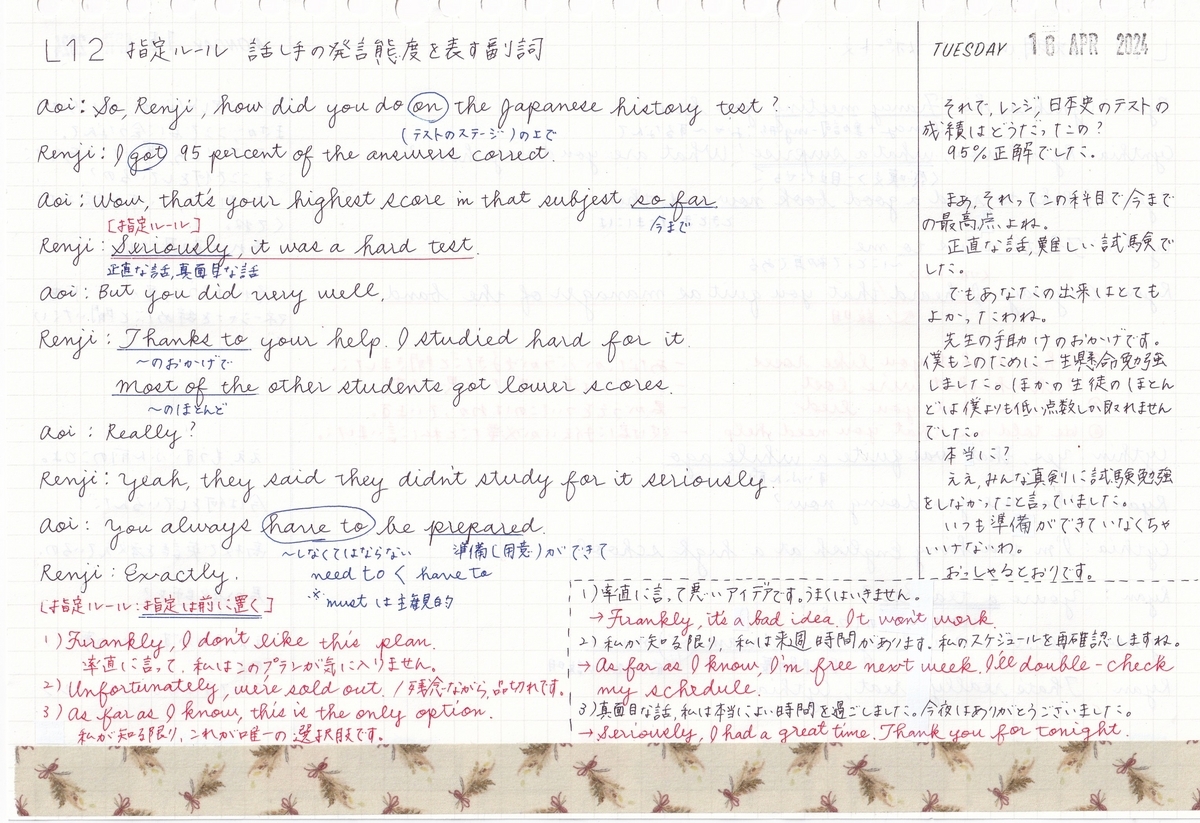 L12 指定ルール 話し手の発言態度を表す副詞
TUESDAY 16 APR 2024
Aoi: So, Renji, how did you do on the Japanese history test?
(テストのステージ)の上で
Renji: I got 95 percent of the answers correct.
Aoi: Wow, that's your highest score in that subject so far.
今まで
[指定ルール]
Renji: Seriously, it was a hard test.
正直な話,真面目な話
Aoi: But you did very well.
Renji: Thanks to your help. I studied hard for it.
〜のおかげで
Most of the other students got lower scores.
〜のほとんど
Aoi: Really?
Renji: Yeah, they said they didn't study for it seriously.
Aoi: You always have to be prepared.
〜しなくてはならない 準備(用意)ができて
need to < have to
※must は主観的
Renji: Exactly.
それで,レンジ,日本史のテストの
成績はどうだったの?
95%正解でした.
まあ,それってこの科目で今まで
の最高点よね。
正直な話,難しい試験で
した。
でもあなたの出来はとても
よかったわね。
先生の手助けのおかげです。
僕もこのために一生懸命勉強
しました。ほかの生徒のほとん
どは僕よりも低い点数しか取れません
でした。
本当に?
ええ,みんな真剣に試験勉強
をしなかったと言っていました。
いつも準備ができていなくちゃ
いけないわ。
おっしゃるとおりです。
[指定ルール:指定は前に置く]
1) Frankly, I don't like this plan.
率直に言って,私はこのプランが気に入りません。
2) Unfortunately, we're sold out. /残念ながら,品切れです。
3) As far as I know, this is the only option.
私が知る限り,これが唯一の選択肢です。
1)率直に言って悪いアイデアです。うまくはいきません。
→Frankly, it's a bad idea. It won't work.
2)私が知る限り,私は来週時間があります。私のスケジュールを再確認しますね。
→As far as I know, I'm free next week. I'll double-check
my schedule.
3)真面目な話,私は本当によい時間を過ごしました。今夜はありがとうございました。
→Seriously, I had a great time. Thank you for tonight.